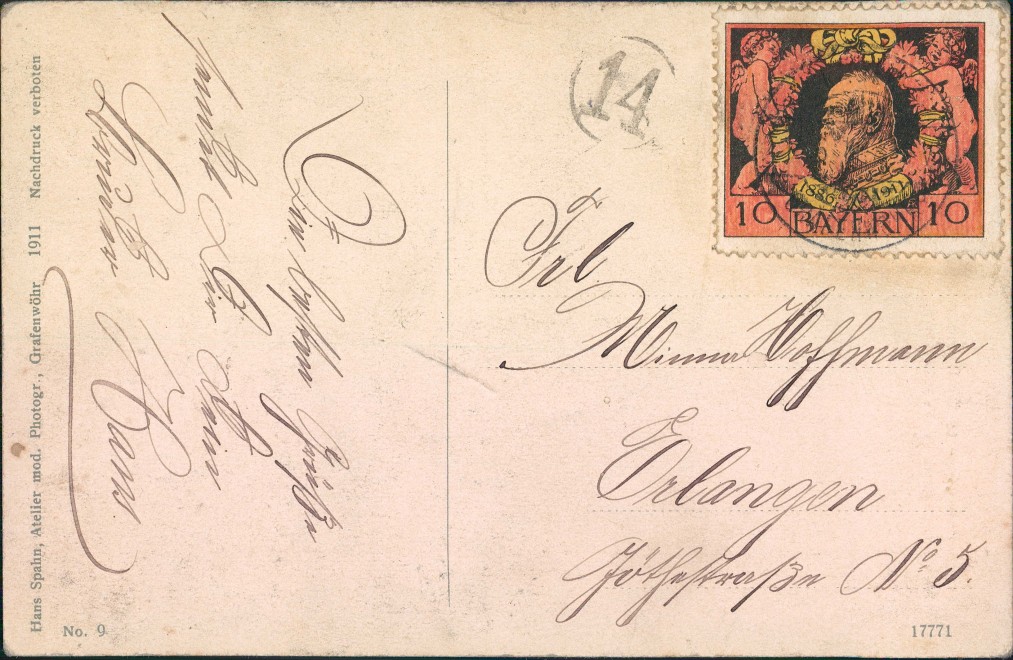 Hans Spahn, Atelier mod. Photogr., Grafenwöhr 1911 Nachdruck verboten
No. 9
Die besten Grüße
sendet Dir Dein
Hans
14
1886 1911
10 BAYERN 10
Frl.
Minna Hoffmann
Erlangen
Göthestraße No 5.
17771